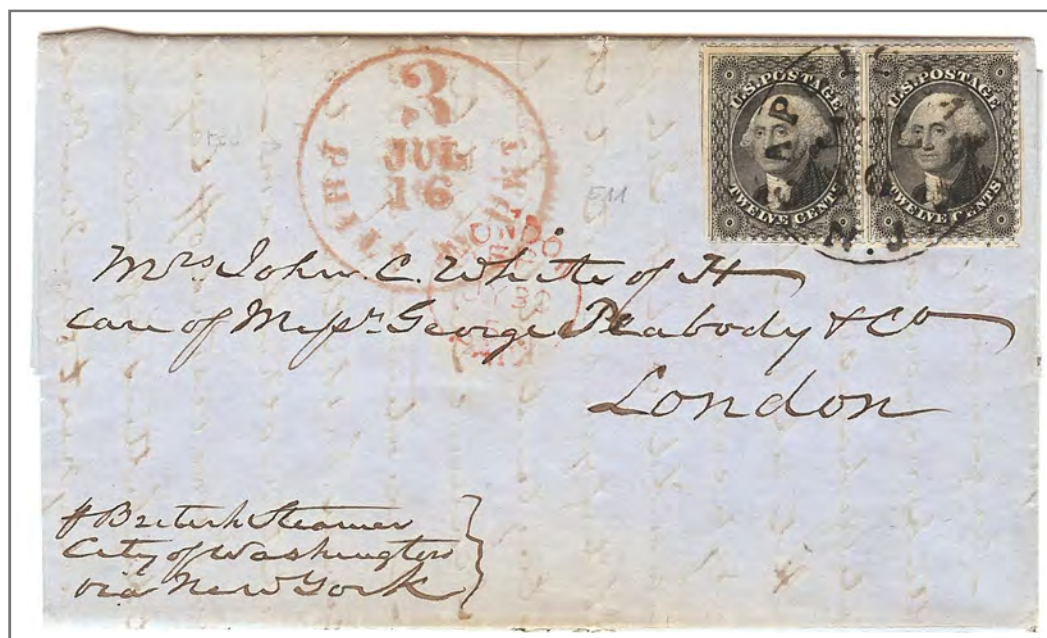 3
JUL
16
PKT
U.S. POSTAGE
TWELVE CENTS
U.S. POSTAGE
TWELVE CENTS
CAP
N.J.
LONDO
JY 30
PAID
Mrs John. C. White of H
care of Messrs George Peabody & Co
London
p British Steamer
City of Washington
via New York